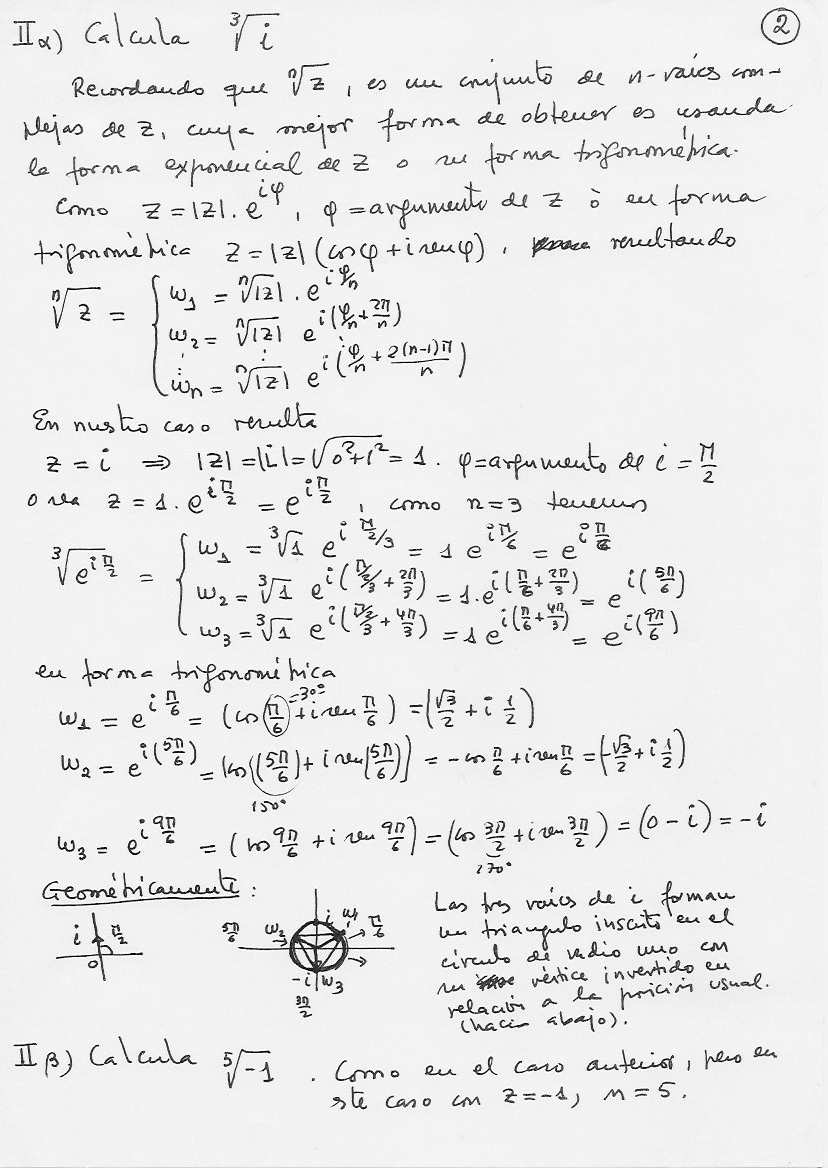 IIα) Calcula ∛i
②
Recordando que ⁿ√z, es un conjunto de n-raíces com-
plejas de z, cuya mejor forma de obtener es usando
la forma exponencial de z o su forma trigonométrica.
Como z = |z|. e^{iφ}, φ = argumento de z ò en forma
trigonométrica z = |z| (cosφ + i senφ), resultando
ⁿ√z = { w₁ = ⁿ√|z| . e^{i φ/n}
w₂ = ⁿ√|z| e^{i(φ/n + 2π/n)}
⋮ ⋮ ⋮
wₙ = ⁿ√|z| e^{i(φ/n + 2(n-1)π/n)}
En nuestro caso resulta
z = i ⇒ |z| = |i| = √(0²+1²) = 1. φ = argumento de i = π/2
o sea z = 1. e^{i π/2} = e^{i π/2}, como n=3 tenemos
∛(e^{i π/2}) = { w₁ = ∛1 e^{i π/2/3} = 1 e^{i π/6} = e^{i π/6}
w₂ = ∛1 e^{i(π/2/3 + 2π/3)} = 1. e^{i(π/6 + 2π/3)} = e^{i(5π/6)}
w₃ = ∛1 e^{i(π/2/3 + 4π/3)} = 1 e^{i(π/6 + 4π/3)} = e^{i(9π/6)}
en forma trigonométrica
w₁ = e^{i π/6} = (cos π/6 + i sen π/6) = (√3/2 + i 1/2)
=30°
w₂ = e^{i(5π/6)} = (cos(5π/6) + i sen(5π/6)) = -cos π/6 + i sen π/6 = (-√3/2 + i 1/2)
150°
w₃ = e^{i 9π/6} = (cos 9π/6 + i sen 9π/6) = (cos 3π/2 + i sen 3π/2) = (0 - i) = -i
270°
Geométricamente:
i π/2
0
5π/6 w₂ i w₁ π/6
-i w₃
3π/2
Las tres raíces de i forman
un triangulo inscrito en el
círculo de radio uno con
su vértice invertido en
relación a la posición usual.
(hacia abajo).
IIβ) Calcula ⁵√-1 . Como en el caso anterior, pero en
este caso con z = -1, n = 5.